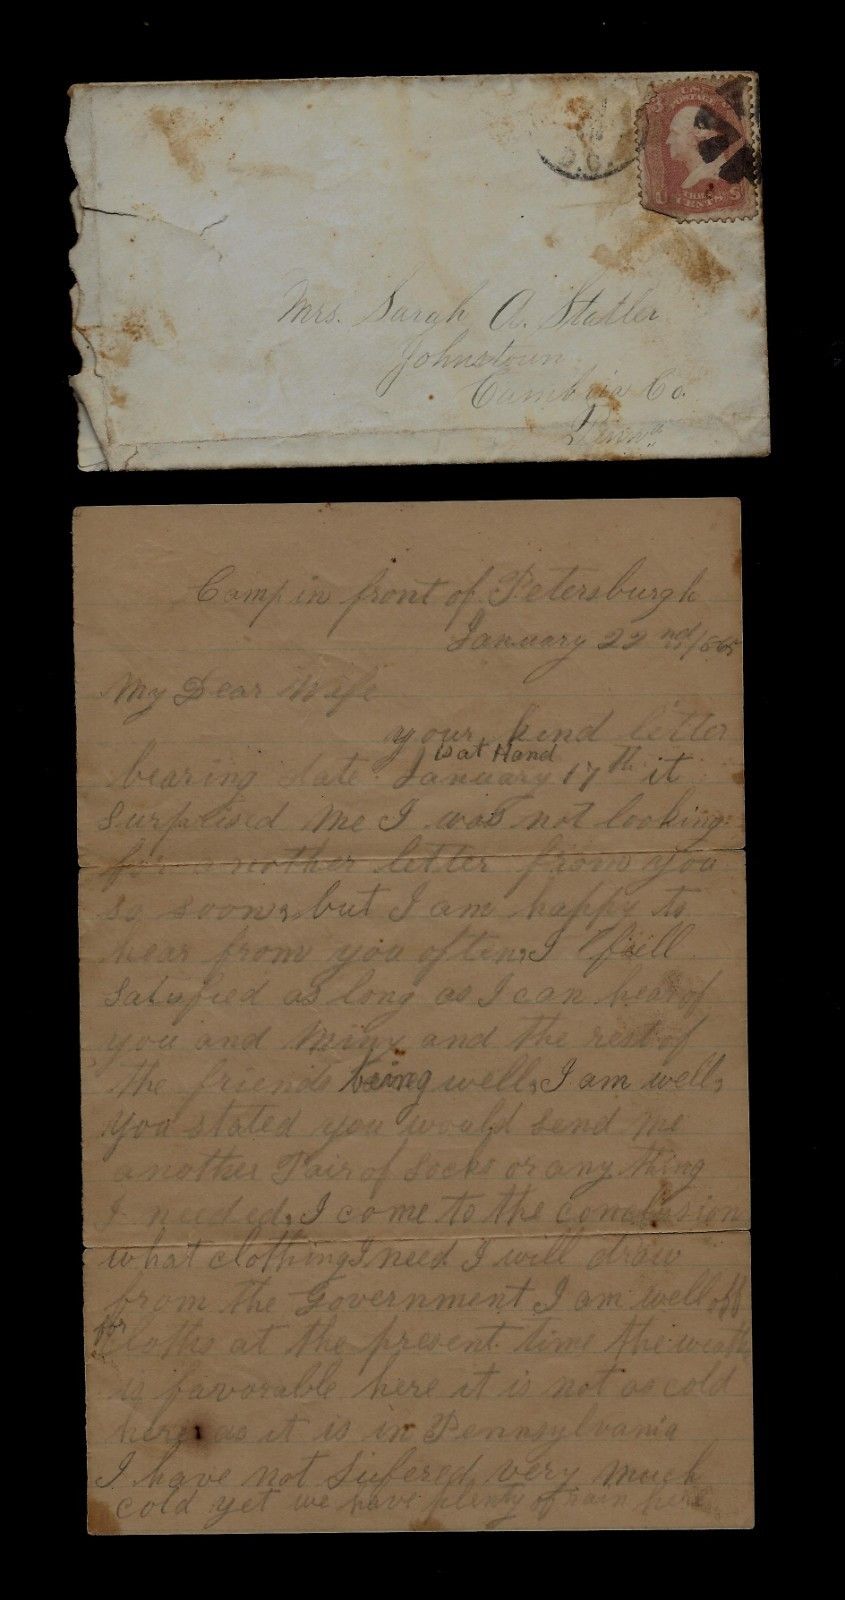 D.C.
U.S. POSTAGE
3
THREE CENTS
U S
Mrs. Sarah A. Statler
Johnstown
Cambria Co.
Penn<sup>a</sup>
Camp in front of Petersburgh
January 22 nd /865
My Dear Wife
your kind letter
is at Hand
bearing date January 17th it
Surprised me I was not looking
for another letter from you
so soon, but I am happy to
hear from you often, I feell
Satisfied as long as I can hear of
you and and the rest of
the friends being well, I am well,
You stated you would send me
another Pair of Socks or any thing
I needed, I come to the conclusion
what clothing I need I will draw
from the Government I am well off
for
cloths at the present time the weath
is favorable here it is not as cold
here as it is in Pennsylvania
I have not Sufered very much
cold yet we have plenty of rain here